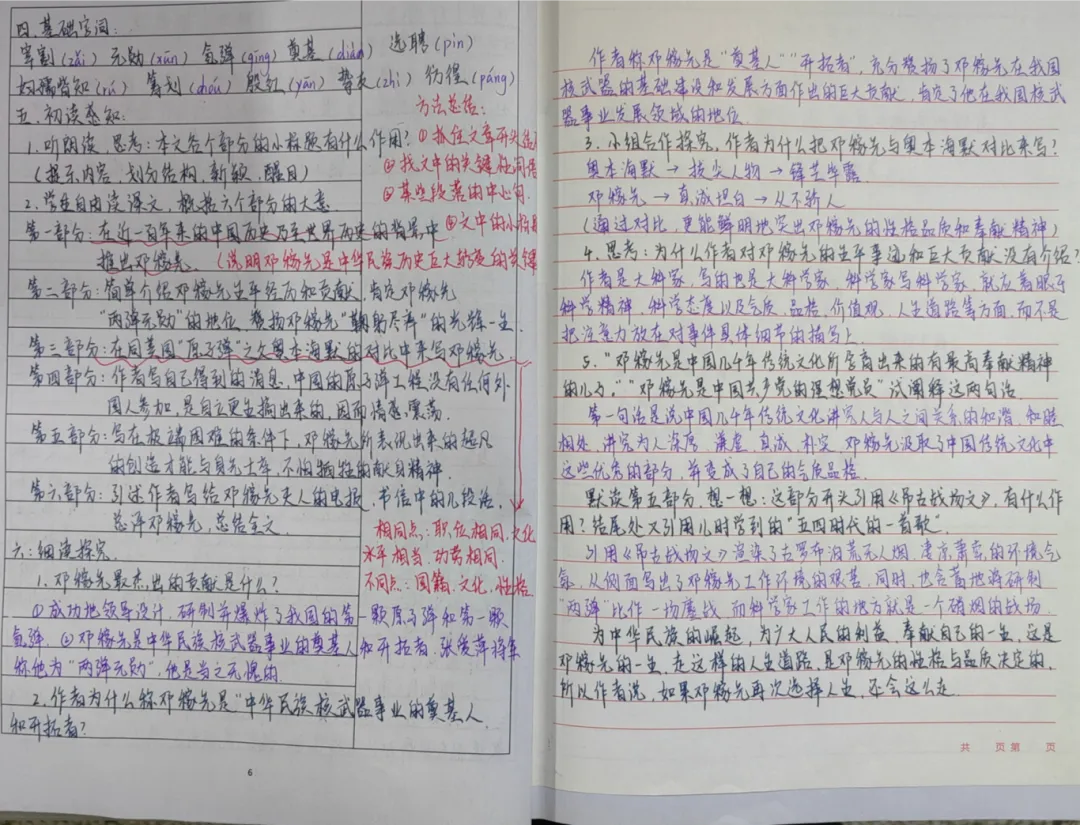 四、基础字词：
宰割(zǎi) 元勋(xūn) 氢弹(qīng) 奠基(diàn) 选聘(pìn)
妇孺皆知(rú) 筹划(chóu) 殷红(yān) 挚友(zhì) 彷徨(páng)
五、初读感知：
1. 听朗读，思考：本文各个部分的小标题有什么作用？
(提示内容、划分结构、新颖、醒目)
2. 学生自由读课文，概括六个部分的大意
第一部分：在近一百年来的中国历史乃至世界历史的背景中
推出邓稼先。(说明邓稼先是中华民族历史巨大转变的关键
第二部分：简单介绍邓稼先生平经历和贡献，肯定邓稼先
"两弹元勋"的地位，赞扬邓稼先"鞠躬尽瘁"的光辉一生
第三部分：在同美国"原子弹"之父奥本海默的对比中来写邓稼先
第四部分：作者写自己得到的消息，中国的原子弹工程没有任何外
国人参加，是自立更生搞出来的，因而情感震荡.
第五部分：写在极端困难的条件下，邓稼先所表现出来的超凡
的创造才能与身先士卒，不怕牺牲的献身精神
第六部分：引述作者写给邓稼先夫人的电报、书信中的几段话，
总评邓稼先，总结全文
方法总结：
①抓住文章开头结
②找文中的关键性词语
③某些段落的中心句
④文中的小标题
相同点：职位相同，文化
水平相当，功劳相同.
不同点：国籍，文化，性格
六：细读探究
1. 邓稼先最杰出的贡献是什么？
①成功地领导设计，研制并爆炸了我国的第一颗原子弹和第一颗
氢弹. ②邓稼先是中华民族核武器事业的奠基人和开拓者，张爱萍将军
称他为"两弹元勋"，他是当之无愧的.
2. 作者为什么称邓稼先是"中华民族核武器事业的奠基人
和开拓者？
6
作者称邓稼先是"奠基人""开拓者"，充分赞扬了邓稼先在我国
核武器的基础建设和发展方面作出的巨大贡献，肯定了他在我国核武
器事业发展领域的地位.
3. 小组合作探究，作者为什么把邓稼先与奥本海默对比来写？
奥本海默→拔尖人物→锋芒毕露.
邓稼先→真诚坦白→从不骄人
(通过对比，更能鲜明地突出邓稼先的性格品质和奉献精神)
4. 思考：为什么作者对邓稼先的生平事迹和巨大贡献没有介绍？
作者是大科家，写的也是大科学家，科学家写科学家，就应着眼于
科学精神，科学态度以及气质、品格、价值观、人生道路等方面，而不是
把注意力放在对事件具体细节的描写上
5. "邓稼先是中国几千年传统文化所孕育出来的有最高奉献精神
的儿子""邓稼先是中国共产党的理想党员"试阐释这两句话.
第一句话是说中国几千年传统文化讲究人与人之间关系的和谐，和睦
相处，讲究为人深厚、谦虚、真诚、朴实，邓稼先汲取了中国传统文化中
这些优秀的部分，并变成了自己的气质品格
默读第五部分，想一想：这部分开头引用《吊古战场文》，有什么作
用？结尾处又引用儿时学到的"五四时代的一首歌".
引用《吊古战场文》渲染了古罗布泊荒无人烟，凄凉萧索的环境气
氛，从侧面写出了邓稼先工作环境的艰苦，同时，也含蓄地将研制
"两弹"比作一场鏖战，而科学家工作的地方就是一个硝烟的战场.
为中华民族的崛起，为广大人民的利益，奉献自己的一生，这是
邓稼先的一生，走这样的人生道路，是邓稼先的性格与品质决定的，
所以作者说，如果邓稼先再次选择人生，还会这么走.
共 页第 页